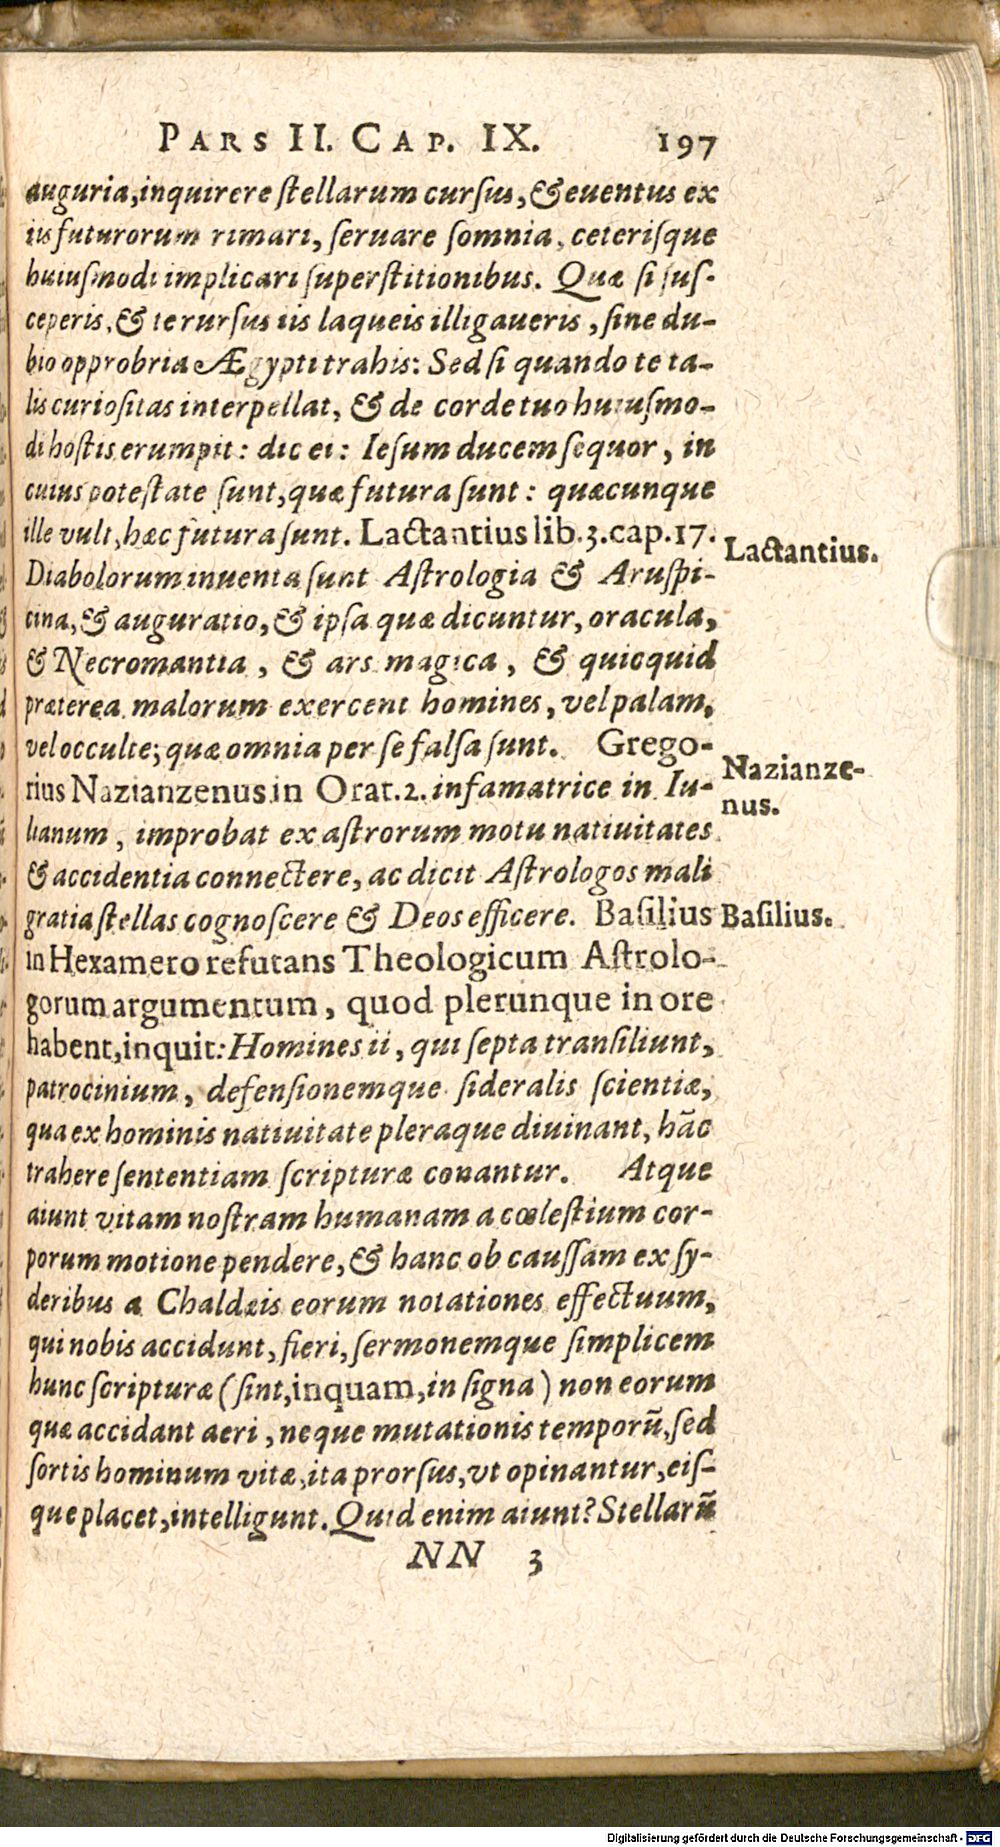 PARS II. CAP. IX. 197
auguria, inquirere ſtellarum curſus, & euentus ex
iis futurorum rimari, ſeruare ſomnia, ceteriſque
huiuſmodi implicari ſuperſtitionibus. Quæ ſi ſuſ-
ceperis, & te rurſus iis laqueis illigaueris, ſine du-
bio opprobria Ægypti trahis: Sed ſi quando te ta-
lis curioſitas interpellat, & de corde tuo huiuſmo-
di hoſtis erumpit: dic ei: Ieſum ducem ſequor, in
cuius poteſtate ſunt, quæ futura ſunt: quæcunque
ille vult, hæc futura ſunt. Lactantius lib. 3. cap. 17.
Lactantius.
Diabolorum inuenta ſunt Aſtrologia & Aruſpi-
cina, & auguratio, & ipſa quæ dicuntur, oracula,
& Necromantia, & ars magica, & quicquid
præterea malorum exercent homines, vel palam,
vel occulte; quæ omnia per ſe falſa ſunt. Grego-
Nazianze-
rius Nazianzenus in Orat. 2. infamatrice in Iu-
nus.
lianum, improbat ex aſtrorum motu natiuitates
& accidentia connectere, ac dicit Aſtrologos mali
gratia ſtellas cognoſcere & Deos efficere. Baſilius
Baſilius.
in Hexamero refutans Theologicum Aſtrolo-
gorum argumentum, quod plerunque in ore
habent, inquit: Homines ii, qui ſepta tranſiliunt,
patrocinium, defenſionemque ſideralis ſcientiæ,
qua ex hominis natiuitate pleraque diuinant, hāc
trahere ſententiam ſcripturæ conantur. Atque
aiunt vitam noſtram humanam a cœleſtium cor-
porum motione pendere, & hanc ob cauſſam ex ſy-
deribus a Chaldæis eorum notationes effectuum,
qui nobis accidunt, fieri, ſermonemque ſimplicem
hunc ſcripturæ (ſint, inquam, in ſigna) non eorum
quæ accidant aeri, neque mutationis temporū, ſed
ſortis hominum vitæ, ita prorſus, vt opinantur, eiſ-
que placet, intelligunt. Quid enim aiunt? Stellarū
NN 3
Digitalisierung gefördert durch die Deutsche Forschungsgemeinschaft - DFG